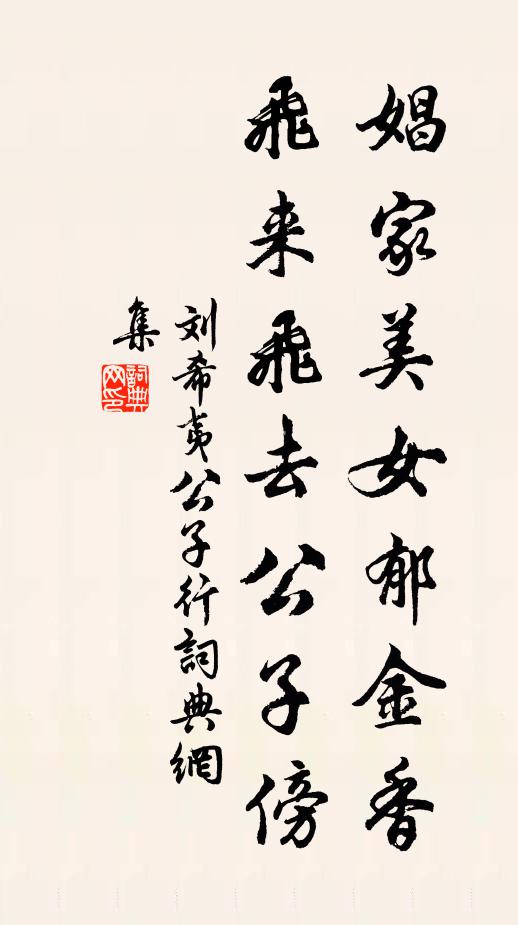 娼家美女郁金香
飛来飛去公子傍
刘希夷公子行詞典網
集
詞典
网印